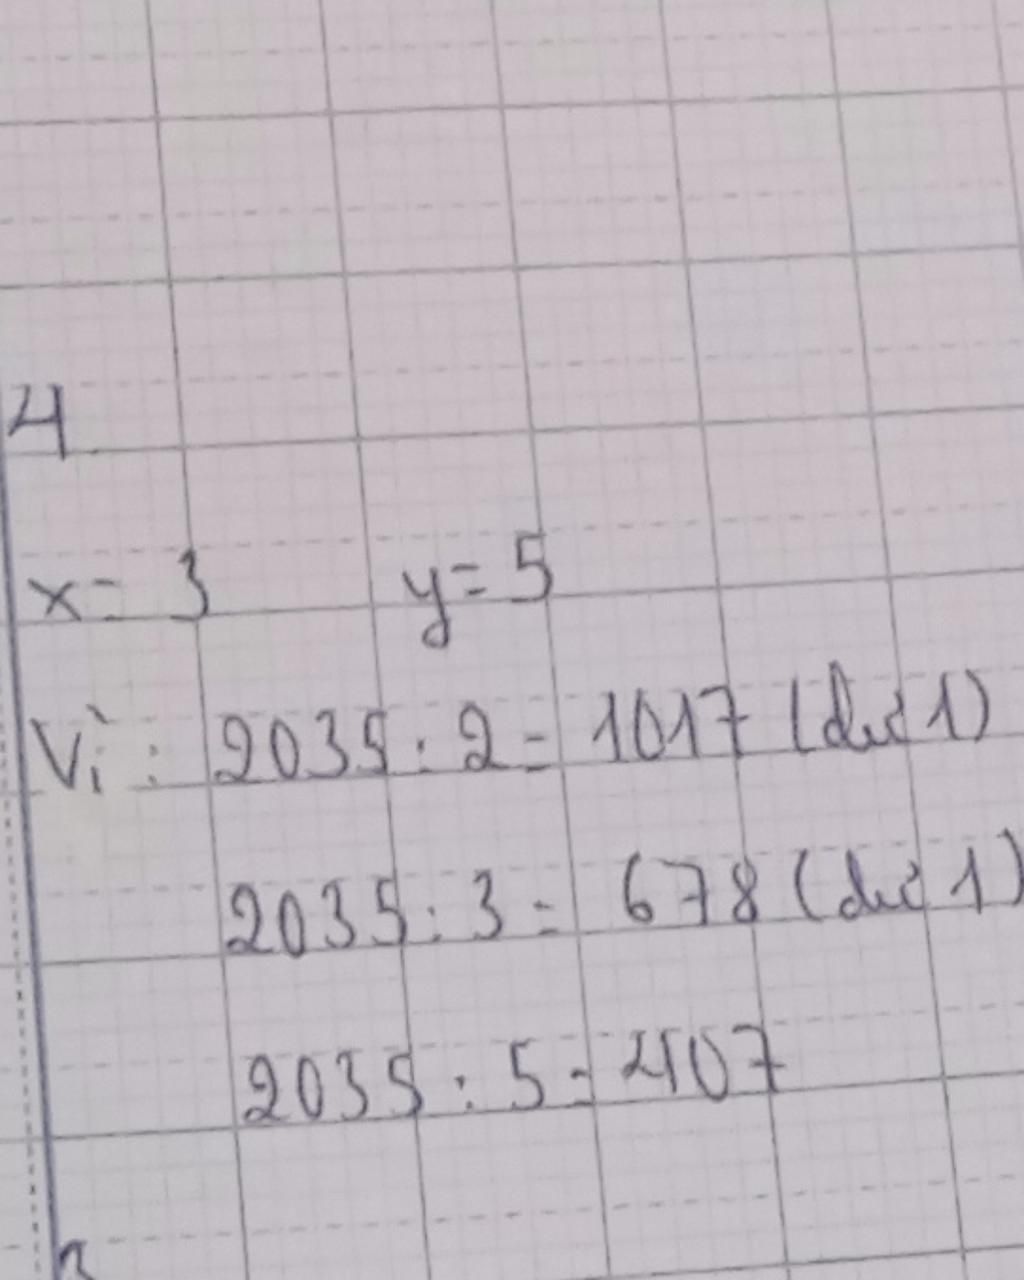 4
x = 3 y = 5
Vì : 2035 : 2 = 1017 (dư 1)
2035 : 3 = 678 (dư 1)
2035 : 5 = 407